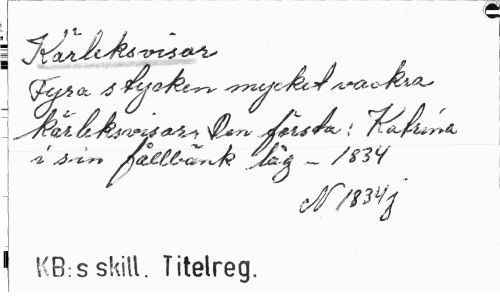 Kärleksvisor
Fyra stycken mycket vackra
kärleksvisor, Den första: Katrina
i sin fållbänk låg - 1834
N 1834j
KB:s skill. Titelreg.